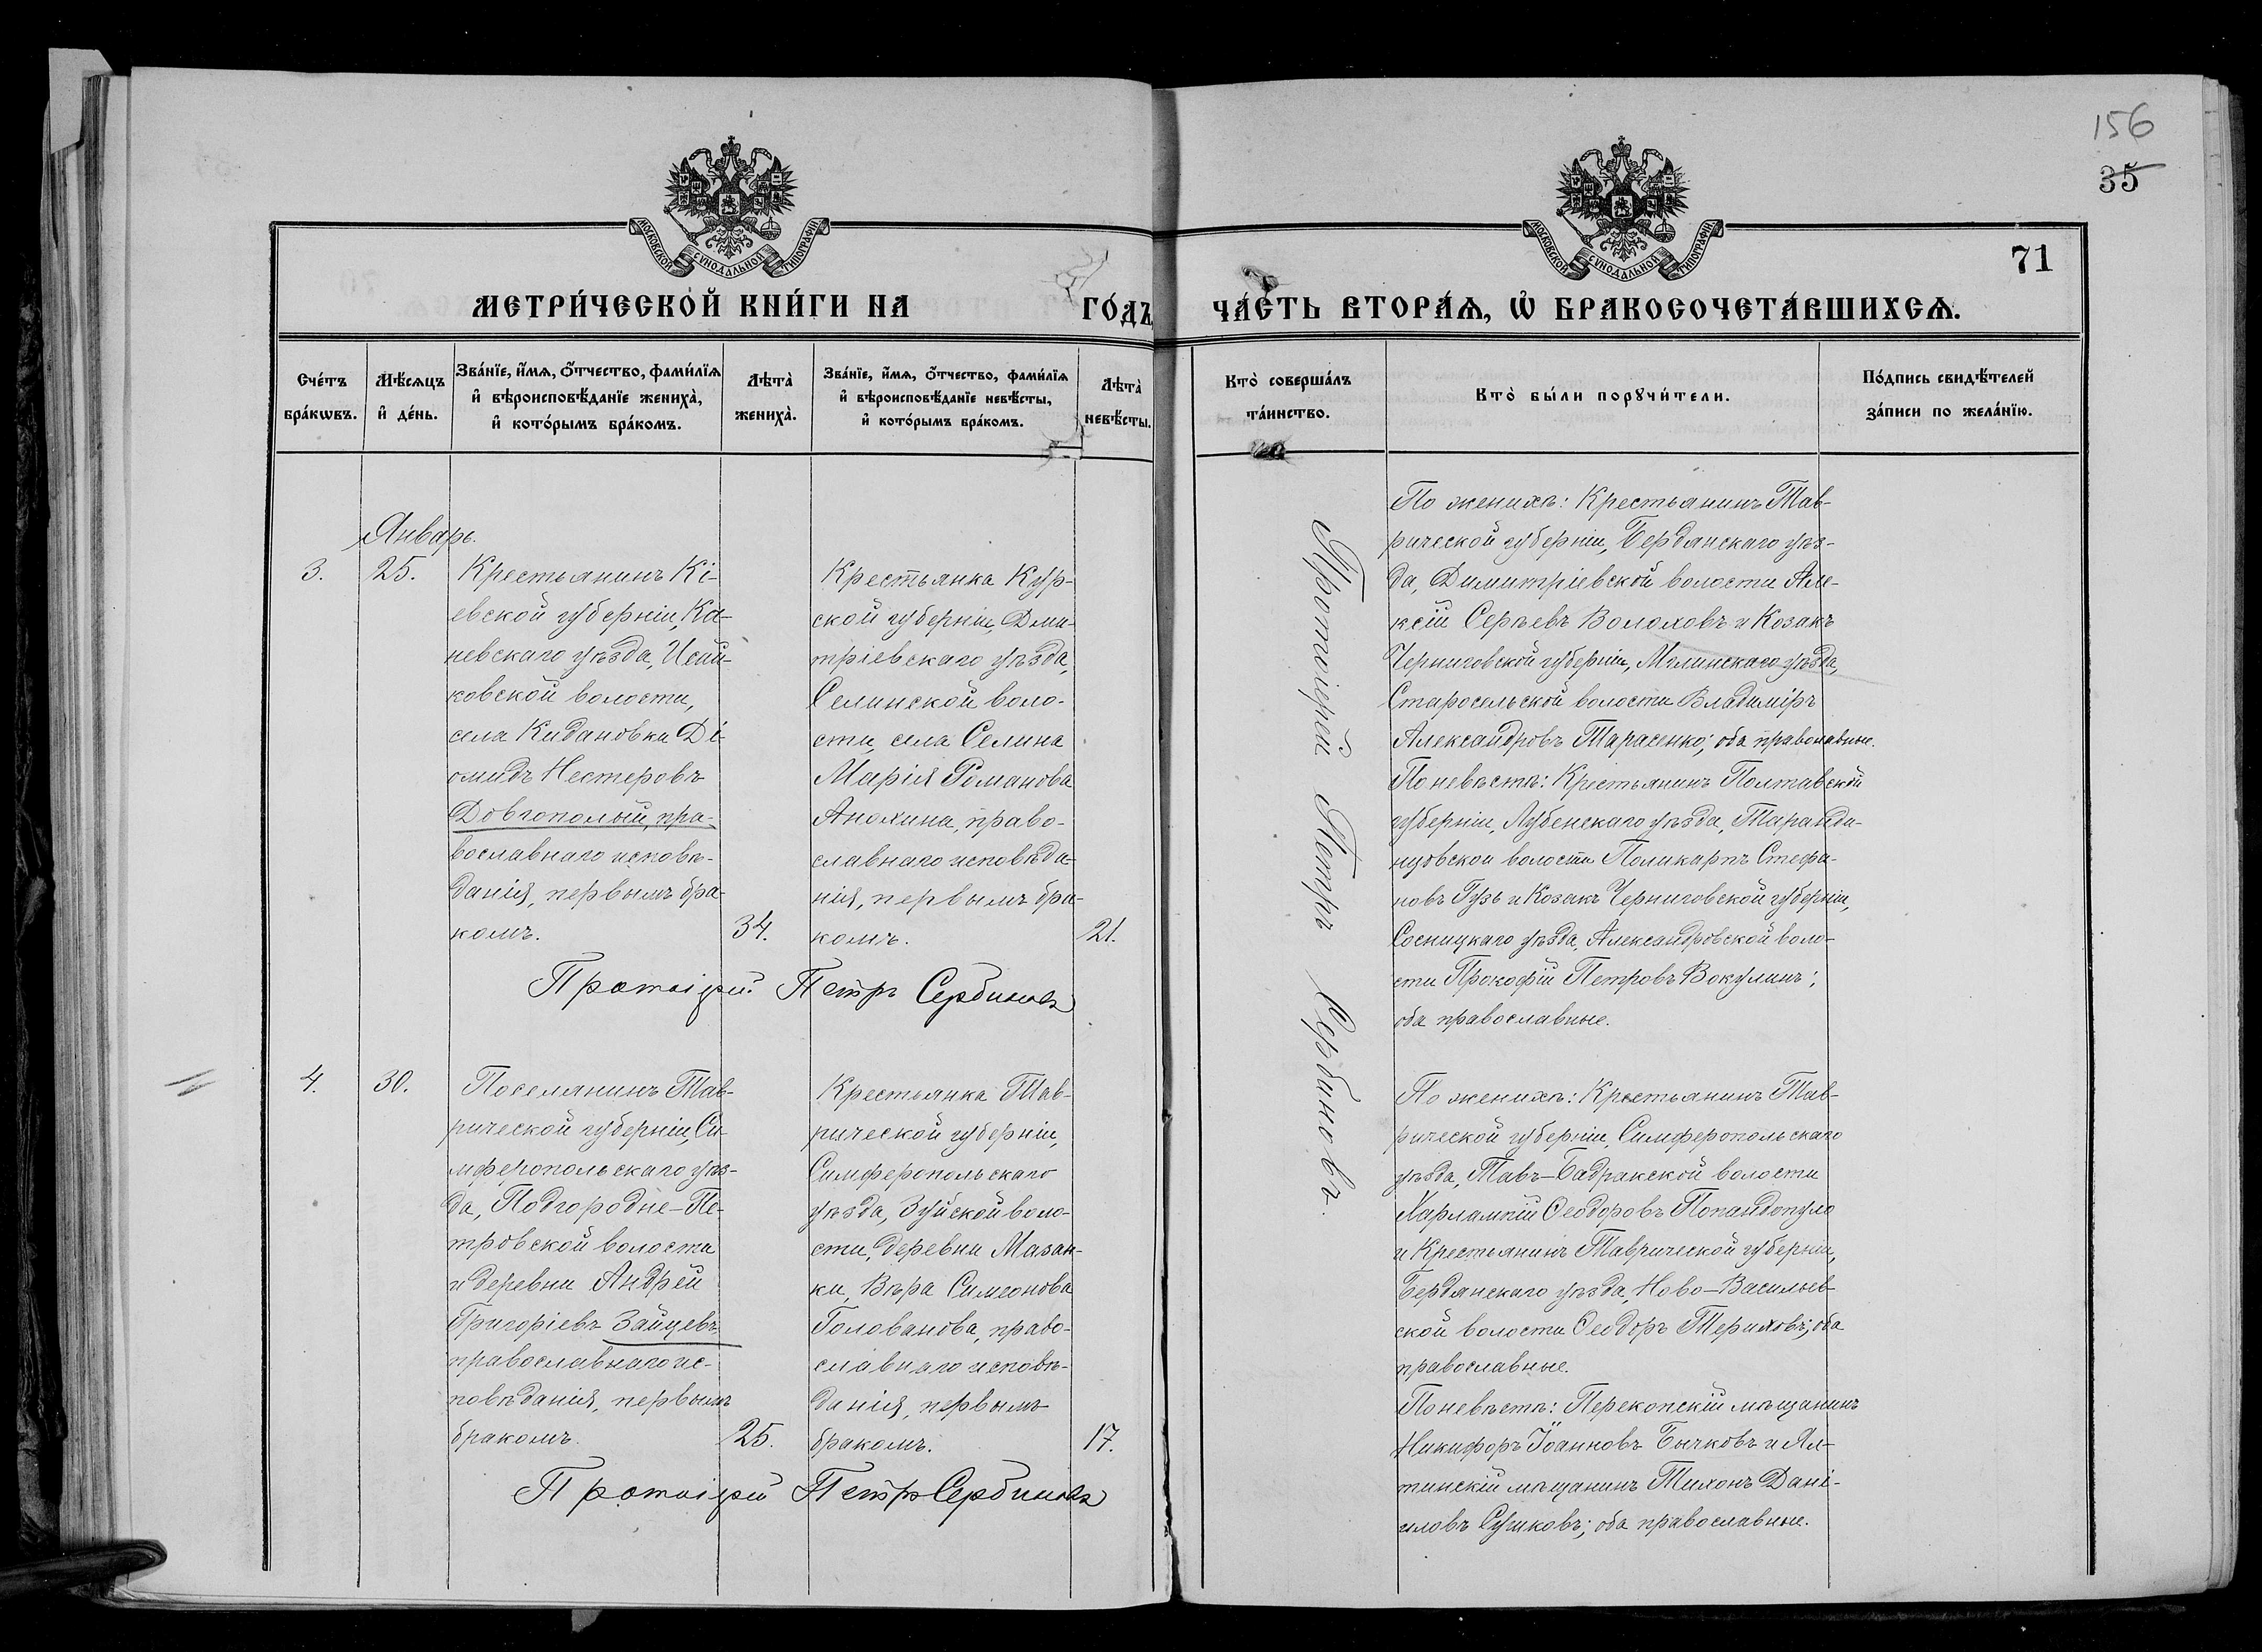 156
35
71
МОСКОВСКОЙ СУНОДАЛЬНОЙ ТИПОГРАФІИ
МОСКОВСКОЙ СУНОДАЛЬНОЙ ТИПОГРАФІИ
МЕТРИ́ЧЕСКОЙ КНИ́ГИ НА ГО́ДЪ
ЧА́СТЬ ВТОРА́Ѧ, Ѽ БРАКОСОЧЕТА́ВШИХСѦ.
Сче́тъ бра́кѡвъ.
Мѣ́сѧцъ и҆ де́нь.
Зва́нїе, и҆́мѧ, ѻ҆́тчество, фами́лїѧ
и҆ вѣроисповѣ́данїе женихà,
и҆ кото́рымъ бра́комъ.
Лѣтà женихà.
Зва́нїе, и҆́мѧ, ѻ҆́тчество, фами́лїѧ
и҆ вѣроисповѣ́данїе невѣ́сты,
и҆ кото́рымъ бра́комъ.
Лѣтà невѣ́сты.
Ктò соверша́лъ
та́инство.
Ктò бы́ли порꙋчи́тели.
По́дпись свидѣ́телей
за́писи по жела́нїю.
Январь.
3.
25.
Крестьянинъ Кі-
евской губерніи, Ка-
невскаго уѣзда,
ковской волости,
села Кидановки Ді-
омидъ Нестеровъ
Довгополый, пра-
вославнаго исповѣ-
данія, первымъ бра-
комъ.
34.
Крестьянка Кур-
ской губерніи, Дми-
тріевскаго уѣзда,
Селинской воло-
сти, села Селина
Марія Романова
Анохина, право-
славнаго исповѣда-
нія, первымъ бра-
комъ.
21.
Протоіерей Петръ Сербиновъ
Протоіерей Петръ Сербиновъ.
По женихѣ: Крестьянинъ Тав-
рической губерніи, Бердянскаго уѣз-
да, Димитріевской волости Але-
ксій Сергѣевъ Волоховъ и Козакъ
Черниговской губерніи, Мглинскаго уѣзда,
Старосельской волости Владиміръ
Александровъ Тарасенко; оба православные.
По невѣстѣ: Крестьянинъ Полтавской
губерніи, Лубенскаго уѣзда, Таранди-
нцовской волости Поликарпъ Стефа-
новъ Гузь и Козакъ Черниговской губерніи,
Сосницкаго уѣзда, Александровской воло-
сти Прокофій Петровъ Вокулинъ;
оба православные.
4.
30.
Поселянинъ Тав-
рической губерніи, Си-
мферопольскаго уѣз-
да, Подгородне-Пе-
тровской волости
и деревни Андрей
Григоріевъ Зайцевъ
православнаго ис-
повѣданія, первымъ
бракомъ.
25.
Крестьянка Тав-
рической губерніи,
Симферопольскаго
уѣзда, Зуйской воло-
сти, деревни Мазан-
ки, Вѣра Симеонова
Голованова, право-
славнаго исповѣ-
данія, первымъ
бракомъ.
17.
Протоіерей Петръ Сербиновъ
По женихѣ: Крестьянинъ Тав-
рической губерніи, Симферопольскаго
уѣзда, Тавъ-Бадракской волости
Харлампій Ѳеодоровъ Попандопуло
и Крестьянинъ Таврической губерніи,
Бердянскаго уѣзда, Ново-Васильев-
ской волости Ѳеодоръ Териховъ; оба
православные.
По невѣстѣ: Перекопскій мѣщанинъ
Никифоръ Іоанновъ Бычковъ и Ял-
тинскій мѣщанинъ Тихонъ Дані-
иловъ Сушковъ; оба православные.